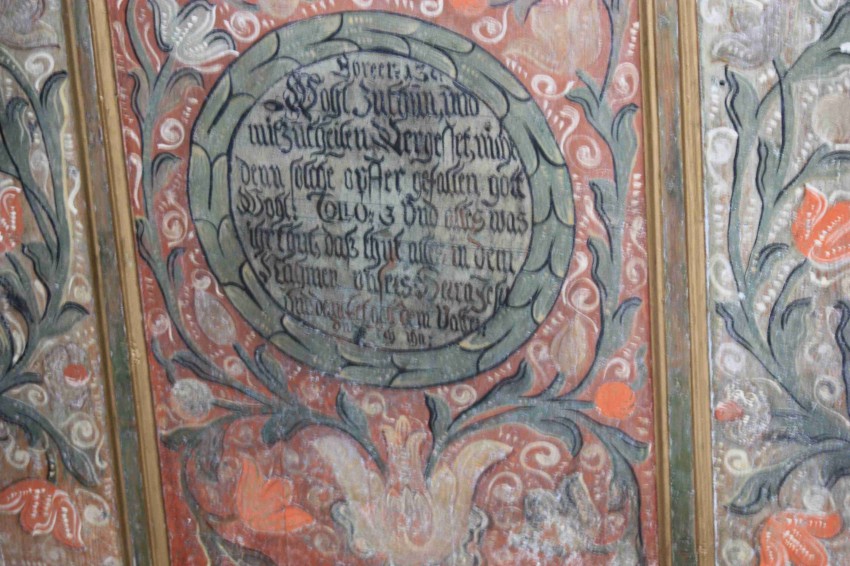 Woghl Zu thun, und
mitzutheilen Vergesset, nicht
denn solche opffer gefallen gott
Woghl: Coll.O: 3 Und alles was
ihr thut, daß thut alles in dem
Nahmen unsers Herrn Jesu
und dancket Gott dem Vatter